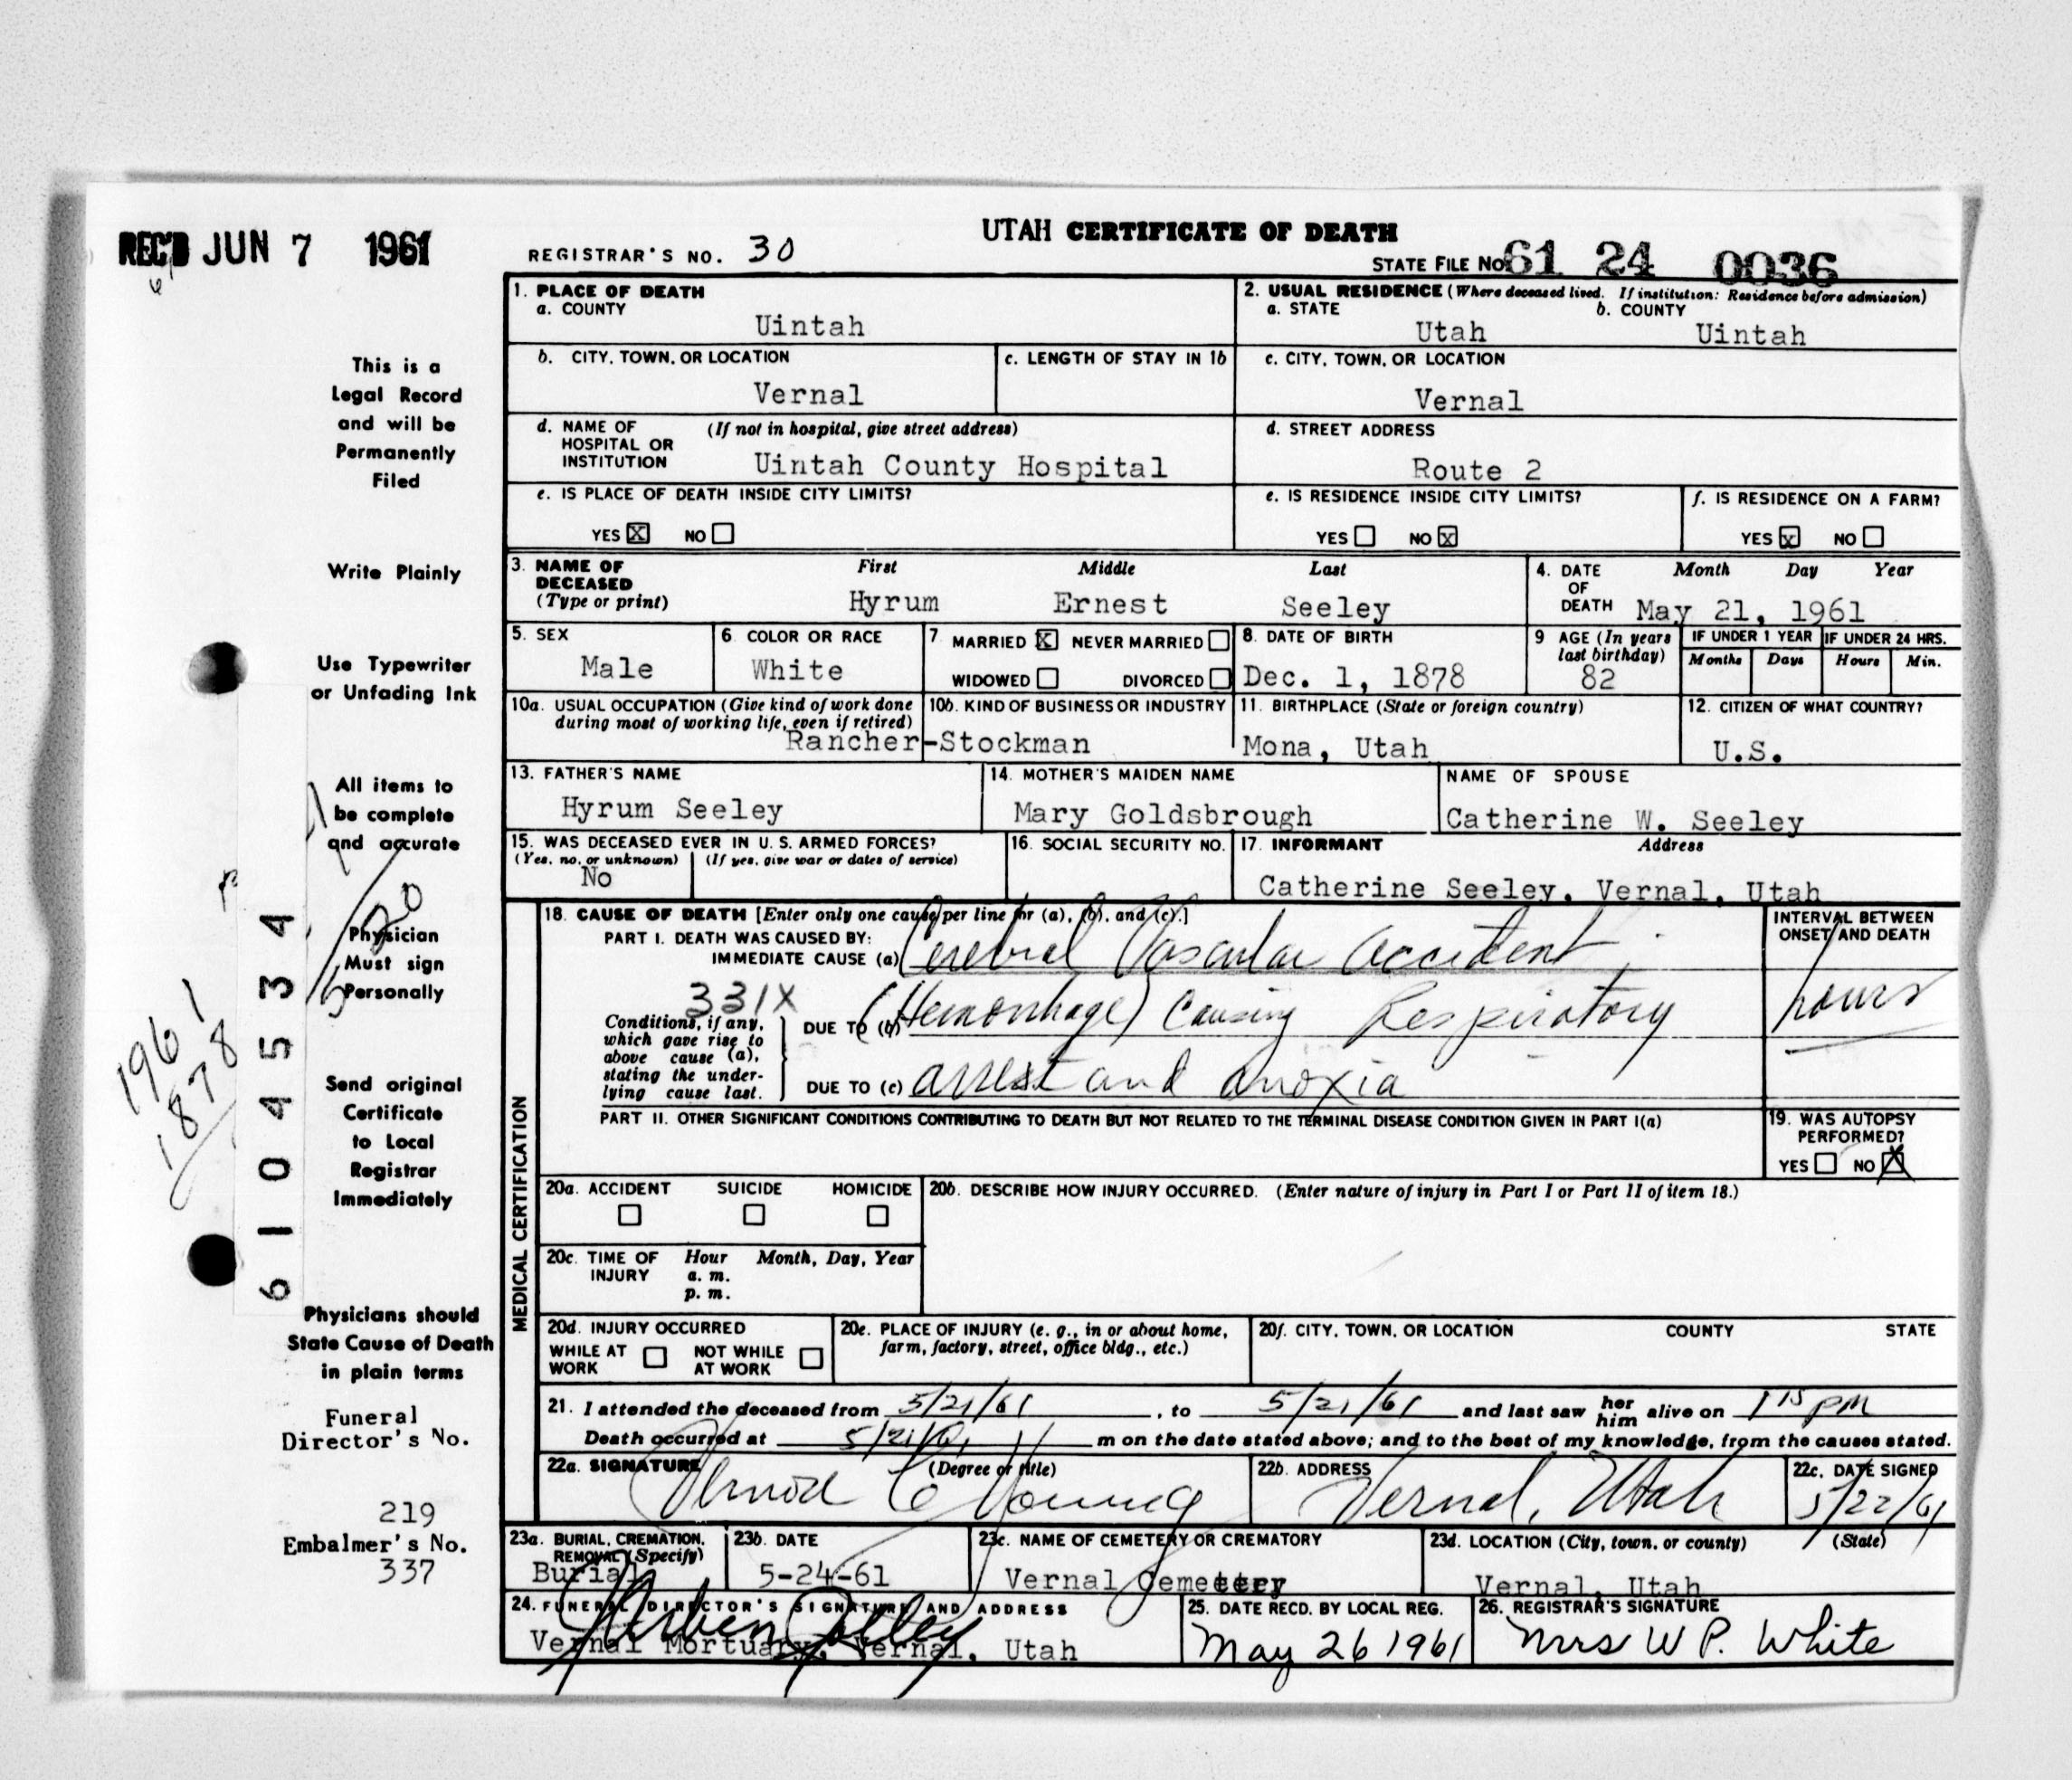 UTAH CERTIFICATE OF DEATH
REC'D JUN 7 1961
REGISTRAR'S NO. 30
STATE FILE NO. 61 24 0036
This is a
Legal Record
and will be
Permanently
Filed
Write Plainly
Use Typewriter
or Unfading Ink
All items to
be complete
and accurate
Physician
Must sign
Personally
Send original
Certificate
to Local
Registrar
Immediately
Physicians should
State Cause of Death
in plain terms
Funeral
Director's No.
219
Embalmer's No.
337
1961
1878
61045534
1. PLACE OF DEATH
a. COUNTY
Uintah
2. USUAL RESIDENCE (Where deceased lived. If institution: Residence before admission)
a. STATE b. COUNTY
Utah Uintah
b. CITY, TOWN, OR LOCATION
Vernal
c. LENGTH OF STAY IN 1b
c. CITY, TOWN, OR LOCATION
Vernal
d. NAME OF (If not in hospital, give street address)
HOSPITAL OR
INSTITUTION Uintah County Hospital
d. STREET ADDRESS
Route 2
e. IS PLACE OF DEATH INSIDE CITY LIMITS?
YES X NO
e. IS RESIDENCE INSIDE CITY LIMITS?
YES NO X
f. IS RESIDENCE ON A FARM?
YES X NO
3. NAME OF DECEASED (Type or print)
First Middle Last
Hyrum Ernest Seeley
4. DATE OF DEATH Month Day Year
May 21, 1961
5. SEX
Male
6. COLOR OR RACE
White
7. MARRIED X NEVER MARRIED
WIDOWED DIVORCED
8. DATE OF BIRTH
Dec. 1, 1878
9 AGE (In years last birthday)
82
IF UNDER 1 YEAR IF UNDER 24 HRS.
Months Days Hours Min.
10a. USUAL OCCUPATION (Give kind of work done during most of working life, even if retired)
10b. KIND OF BUSINESS OR INDUSTRY
Rancher-Stockman
11. BIRTHPLACE (State or foreign country)
Mona, Utah
12. CITIZEN OF WHAT COUNTRY?
U.S.
13. FATHER'S NAME
Hyrum Seeley
14. MOTHER'S MAIDEN NAME
Mary Goldsbrough
NAME OF SPOUSE
Catherine W. Seeley
15. WAS DECEASED EVER IN U. S. ARMED FORCES?
(Yes, no, or unknown) (If yes, give war or dates of service)
No
16. SOCIAL SECURITY NO.
17. INFORMANT Address
Catherine Seeley, Vernal, Utah
MEDICAL CERTIFICATION
18. CAUSE OF DEATH [Enter only one cause per line for (a), (b), and (c).]
PART I. DEATH WAS CAUSED BY:
IMMEDIATE CAUSE (a) Cerebral Vascular accident
331X
Conditions, if any, which gave rise to above cause (a), stating the underlying cause last.
DUE TO (b) (Hemorrhage) causing Respiratory
DUE TO (c) arrest and anoxia
INTERVAL BETWEEN ONSET AND DEATH
hours
PART II. OTHER SIGNIFICANT CONDITIONS CONTRIBUTING TO DEATH BUT NOT RELATED TO THE TERMINAL DISEASE CONDITION GIVEN IN PART I(a)
19. WAS AUTOPSY PERFORMED?
YES NO X
20a. ACCIDENT SUICIDE HOMICIDE
20b. DESCRIBE HOW INJURY OCCURRED. (Enter nature of injury in Part I or Part II of item 18.)
20c. TIME OF INJURY Hour Month, Day, Year
a. m.
p. m.
20d. INJURY OCCURRED
WHILE AT WORK NOT WHILE AT WORK
20e. PLACE OF INJURY (e. g., in or about home, farm, factory, street, office bldg., etc.)
20f. CITY, TOWN, OR LOCATION COUNTY STATE
21. I attended the deceased from 5/21/61, to 5/21/61 and last saw her him alive on 1 15 PM
Death occurred at 5/21/61 m on the date stated above; and to the best of my knowledge, from the causes stated.
22a. SIGNATURE (Degree or title)
Young
22b. ADDRESS
Vernal, Utah
22c. DATE SIGNED
5/22/61
23a. BURIAL, CREMATION, REMOVAL (Specify)
Burial
23b. DATE
5-24-61
23c. NAME OF CEMETERY OR CREMATORY
Vernal Cemetery
23d. LOCATION (City, town, or county) (State)
Vernal, Utah
24. FUNERAL DIRECTOR'S SIGNATURE AND ADDRESS
Vernal Mortuary, Vernal, Utah
25. DATE RECD. BY LOCAL REG.
May 26 1961
26. REGISTRAR'S SIGNATURE
Mrs W P. White